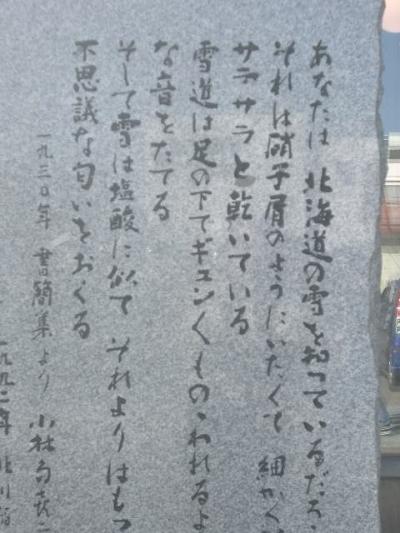 あなたは 北海道の雪を知っているだろう
それは硝子屑のようにいたくて 細かく
サラサラと乾いている
雪道は足の下でギュンくものゝわれるよ
な音をたてる
そして雪は塩酸に似て それよりはもっ
不思議な匂いをおくる
一九三〇年 書簡集より 小林多喜二
一九九二年